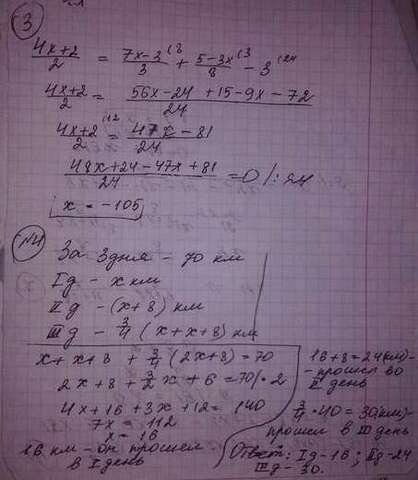 ③
(4x+2)/2 = (7x-3)/3 (8 + (5-3x)/8 (3 - 3 (24
(4x+2)/2 = (56x-24+15-9x-72)/24
(4x+2)/2 (12 = (47x-81)/24
(48x+24-47x+81)/24 = 0 /·24
x = -105
№4
За 3 дня - 70 км
I д - x км
II д - (x+8) км
III д - 3/4 (x+x+8) км
x+x+8 + 3/4 (2x+8) = 70
2x+8 + 3/2 x + 6 = 70 /·2
4x+16+3x+12 = 140
7x = 112
x = 16
16 км - он прошел
в I день
16+8=24(км)-
- прошел во
II день
3/4 · 40 = 30(км)-
прошел в III день
Ответ: I д - 16; II д - 24
III д - 30.